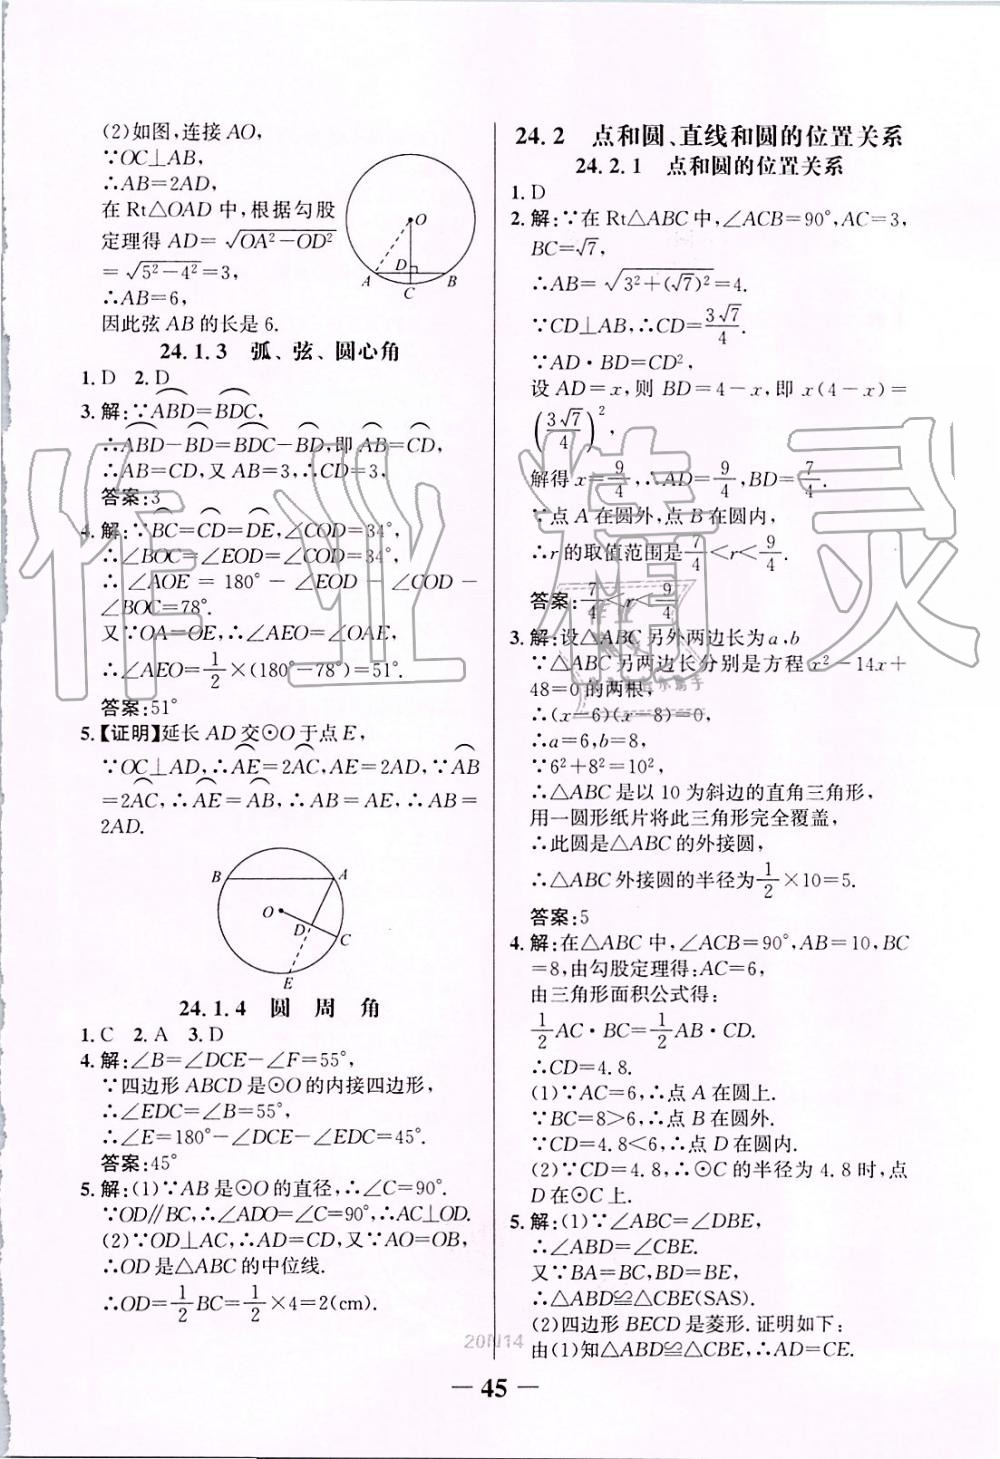 (2)如图,连接AO,
∵OC⊥AB,
∴AB=2AD,
在Rt△OAD中,根据勾股
定理得AD=√(OA²-OD²)
=√(5²-4²)=3,
∴AB=6,
因此弦AB的长是6.
O
D
A
B
C
24.1.3 弧、弦、圆心角
1. D 2. D
3. 解:∵⌒ABD=⌒BDC,
∴⌒ABD-⌒BD=⌒BDC-⌒BD,即⌒AB=⌒CD,
∴AB=CD,又AB=3,∴CD=3,
答案:3
4. 解:∵⌒BC=⌒CD=⌒DE,∠COD=34°,
∴∠BOC=∠EOD=∠COD=34°,
∴∠AOE=180°-∠EOD-∠COD-
∠BOC=78°.
又∵OA=OE,∴∠AEO=∠OAE,
∴∠AEO=1/2×(180°-78°)=51°.
答案:51°
5.【证明】延长AD交⊙O于点E,
∵OC⊥AD,∴⌒AE=2⌒AC,AE=2AD,∵⌒AB
=2⌒AC,∴⌒AE=⌒AB,∴AB=AE,∴AB=
2AD.
B
A
O
D
C
E
24.1.4 圆 周 角
1. C 2. A 3. D
4. 解:∠B=∠DCE-∠F=55°,
∵四边形ABCD是⊙O的内接四边形,
∴∠EDC=∠B=55°,
∴∠E=180°-∠DCE-∠EDC=45°.
答案:45°
5. 解:(1)∵AB是⊙O的直径,∴∠C=90°.
∵OD∥BC,∴∠ADO=∠C=90°,∴AC⊥OD.
(2)∵OD⊥AC,∴AD=CD,又∵AO=OB,
∴OD是△ABC的中位线.
∴OD=1/2BC=1/2×4=2(cm).
24.2 点和圆、直线和圆的位置关系
24.2.1 点和圆的位置关系
1. D
2. 解:∵在Rt△ABC中,∠ACB=90°,AC=3,
BC=√7,
∴AB=√(3²+(√7)²)=4.
∵CD⊥AB,∴CD=3√7/4.
∵AD·BD=CD²,
设AD=x,则BD=4-x,即x(4-x)=
(3√7/4)²,
解得x=9/4,∴AD=9/4,BD=7/4.
∵点A在圆外,点B在圆内,
∴r的取值范围是7/4<r<9/4.
答案:7/4<r<9/4
3. 解:设△ABC另外两边长为a,b
∵△ABC另两边长分别是方程x²-14x+
48=0的两根,
∴(x-6)(x-8)=0,
∴a=6,b=8,
∵6²+8²=10²,
∴△ABC是以10为斜边的直角三角形,
用一圆形纸片将此三角形完全覆盖,
∴此圆是△ABC的外接圆,
∴△ABC外接圆的半径为1/2×10=5.
答案:5
4. 解:在△ABC中,∠ACB=90°,AB=10,BC
=8,由勾股定理得:AC=6,
由三角形面积公式得:
1/2AC·BC=1/2AB·CD.
∴CD=4.8.
(1)∵AC=6,∴点A在圆上.
∵BC=8>6,∴点B在圆外.
∵CD=4.8<6,∴点D在圆内.
(2)∵CD=4.8,∴⊙C的半径为4.8时,点
D在⊙C上.
5. 解:(1)∵∠ABC=∠DBE,
∴∠ABD=∠CBE.
又∵BA=BC,BD=BE,
∴△ABD≌△CBE(SAS).
(2)四边形BECD是菱形.证明如下:
由(1)知△ABD≌△CBE,∴AD=CE.
20N14
— 45 —
作业精灵